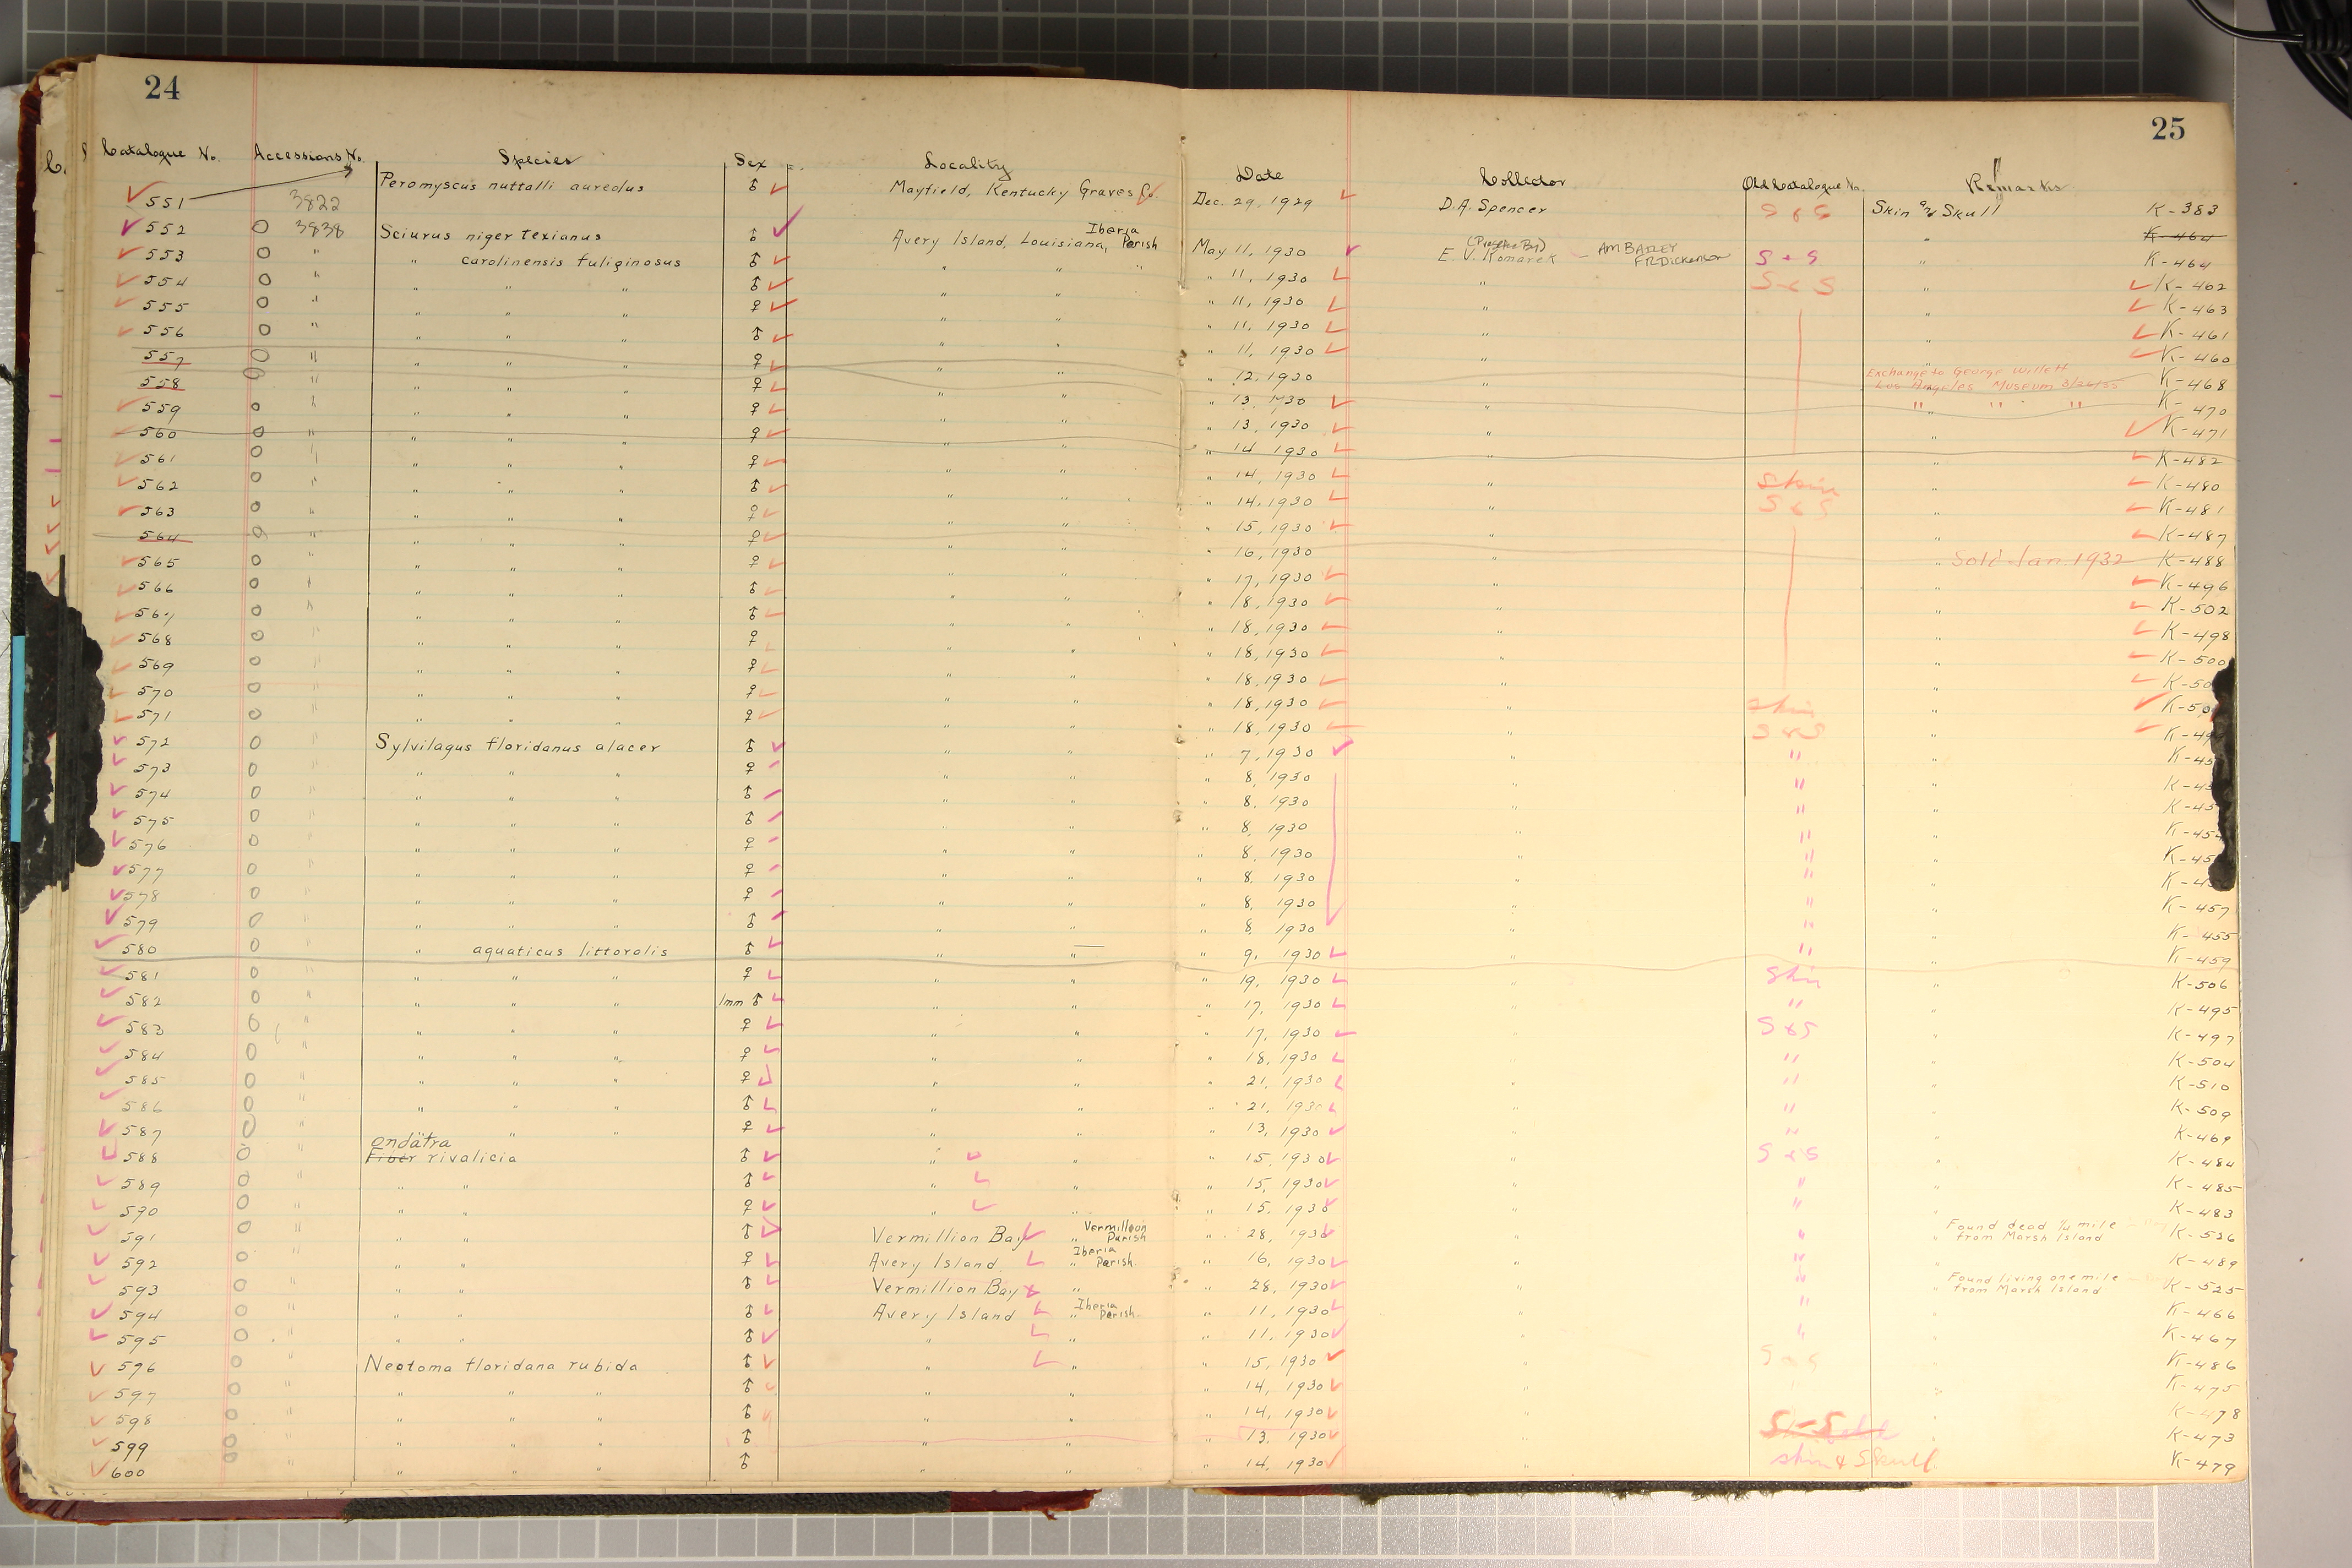 24
25
Catalogue No. Accessions No. Species Sex Locality Date Collector Old Catalogue No. Remarks
551 3822 Peromyscus nuttalli aureolus ♂ Mayfield, Kentucky Graves Co. Dec. 29, 1929 D.A. Spencer S & S Skin and Skull K-383
552 3838 Sciurus niger texianus ♂ Avery Island, Louisiana, Iberia Parish May 11, 1930 E. V. Komarek — AM BAILEY FR Dickenson S + S " K-464 K-464
553 " " carolinensis fuliginosus ♂ " " " " 11, 1930 " S & S " K-462
554 " " " " ♂ " " " 11, 1930 " " K-463
555 " " " " ♀ " " " 11, 1930 " " K-461
556 " " " " ♂ " " " 11, 1930 " " K-460
557 " " " " ♀ " " " 12, 1930 " Exchange to George Willett Los Angeles Museum 3/26/35 K-468
558 " " " " ♀ " " " 13, 1930 " " " " K-470
559 " " " " ♀ " " " 13, 1930 " " K-471
560 " " " " ♀ " " " 14 1930 " " K-482
561 " " " " ♀ " " " 14, 1930 " Skin " K-480
562 " " " " ♂ " " " 14, 1930 " S & S " K-481
563 " " " " ♀ " " " 15, 1930 " " K-487
564 " " " " ♀ " " " 16, 1930 " " Sold Jan. 1932 K-488
565 " " " " ♀ " " " 17, 1930 " " K-496
566 " " " " ♂ " " " 18, 1930 " " K-502
567 " " " " ♂ " " " 18, 1930 " " K-498
568 " " " " ♀ " " " 18, 1930 " " K-500
569 " " " " ♀ " " " 18, 1930 " " K-50
570 " " " " ♀ " " " 18, 1930 " Skin " K-50
571 " " " " ♀ " " " 18, 1930 " S & S " K-49
572 " Sylvilagus floridanus alacer ♂ " " " 7, 1930 " " " K-45
573 " " " " ♀ " " " 8, 1930 " " " K-45
574 " " " " ♂ " " " 8, 1930 " " " K-45
575 " " " " ♂ " " " 8, 1930 " " " K-454
576 " " " " ♀ " " " 8, 1930 " " " K-45
577 " " " " ♀ " " " 8, 1930 " " " K-45
578 " " " " ♀ " " " 8, 1930 " " " K-457
579 " " " " ♂ " " " 8, 1930 " " " K-455
580 " " aquaticus littoralis ♂ " " " 9, 1930 " " " K-459
581 " " " " ♀ " " " 19, 1930 " Skin " K-506
582 " " " " Imm ♂ " " " 17, 1930 " " " K-495
583 " " " " ♀ " " " 17, 1930 " S & S " K-497
584 " " " " ♀ " " " 18, 1930 " " " K-504
585 " " " " ♀ " " " 21, 1930 " " " K-510
586 " " " " ♂ " " " 21, 1930 " " " K-509
587 " " " ♀ " " " 13, 1930 " " " K-469
ondatra
588 " Fiber rivalicia ♂ " " " 15, 1930 " S & S " K-484
589 " " " ♂ " " " 15, 1930 " " " K-485
590 " " " ♀ " " " 15, 1930 " " " K-483
591 " " " ♂ Vermillion Bay " Vermillion Parish " 28, 1930 " " " Found dead ¼ mile from Marsh Island K-526
592 " " " ♀ Avery Island. " Iberia Parish. " 16, 1930 " " " K-489
593 " " " ♂ Vermillion Bay " " 28, 1930 " " " Found living one mile from Marsh Island K-525
594 " " " ♂ Avery Island " Iberia Parish. " 11, 1930 " " " K-466
595 " " " ♂ " " " 11, 1930 " " " K-467
596 " Neotoma floridana rubida ♂ " " " 15, 1930 " S & S " K-486
597 " " " " ♂ " " " 14, 1930 " " K-475
598 " " " " ♂ " " " 14, 1930 " " K-478
599 " " " " ♂ " " " 13, 1930 " " K-473
600 " " " " ♂ " " " 14, 1930 " skin & Skull K-479